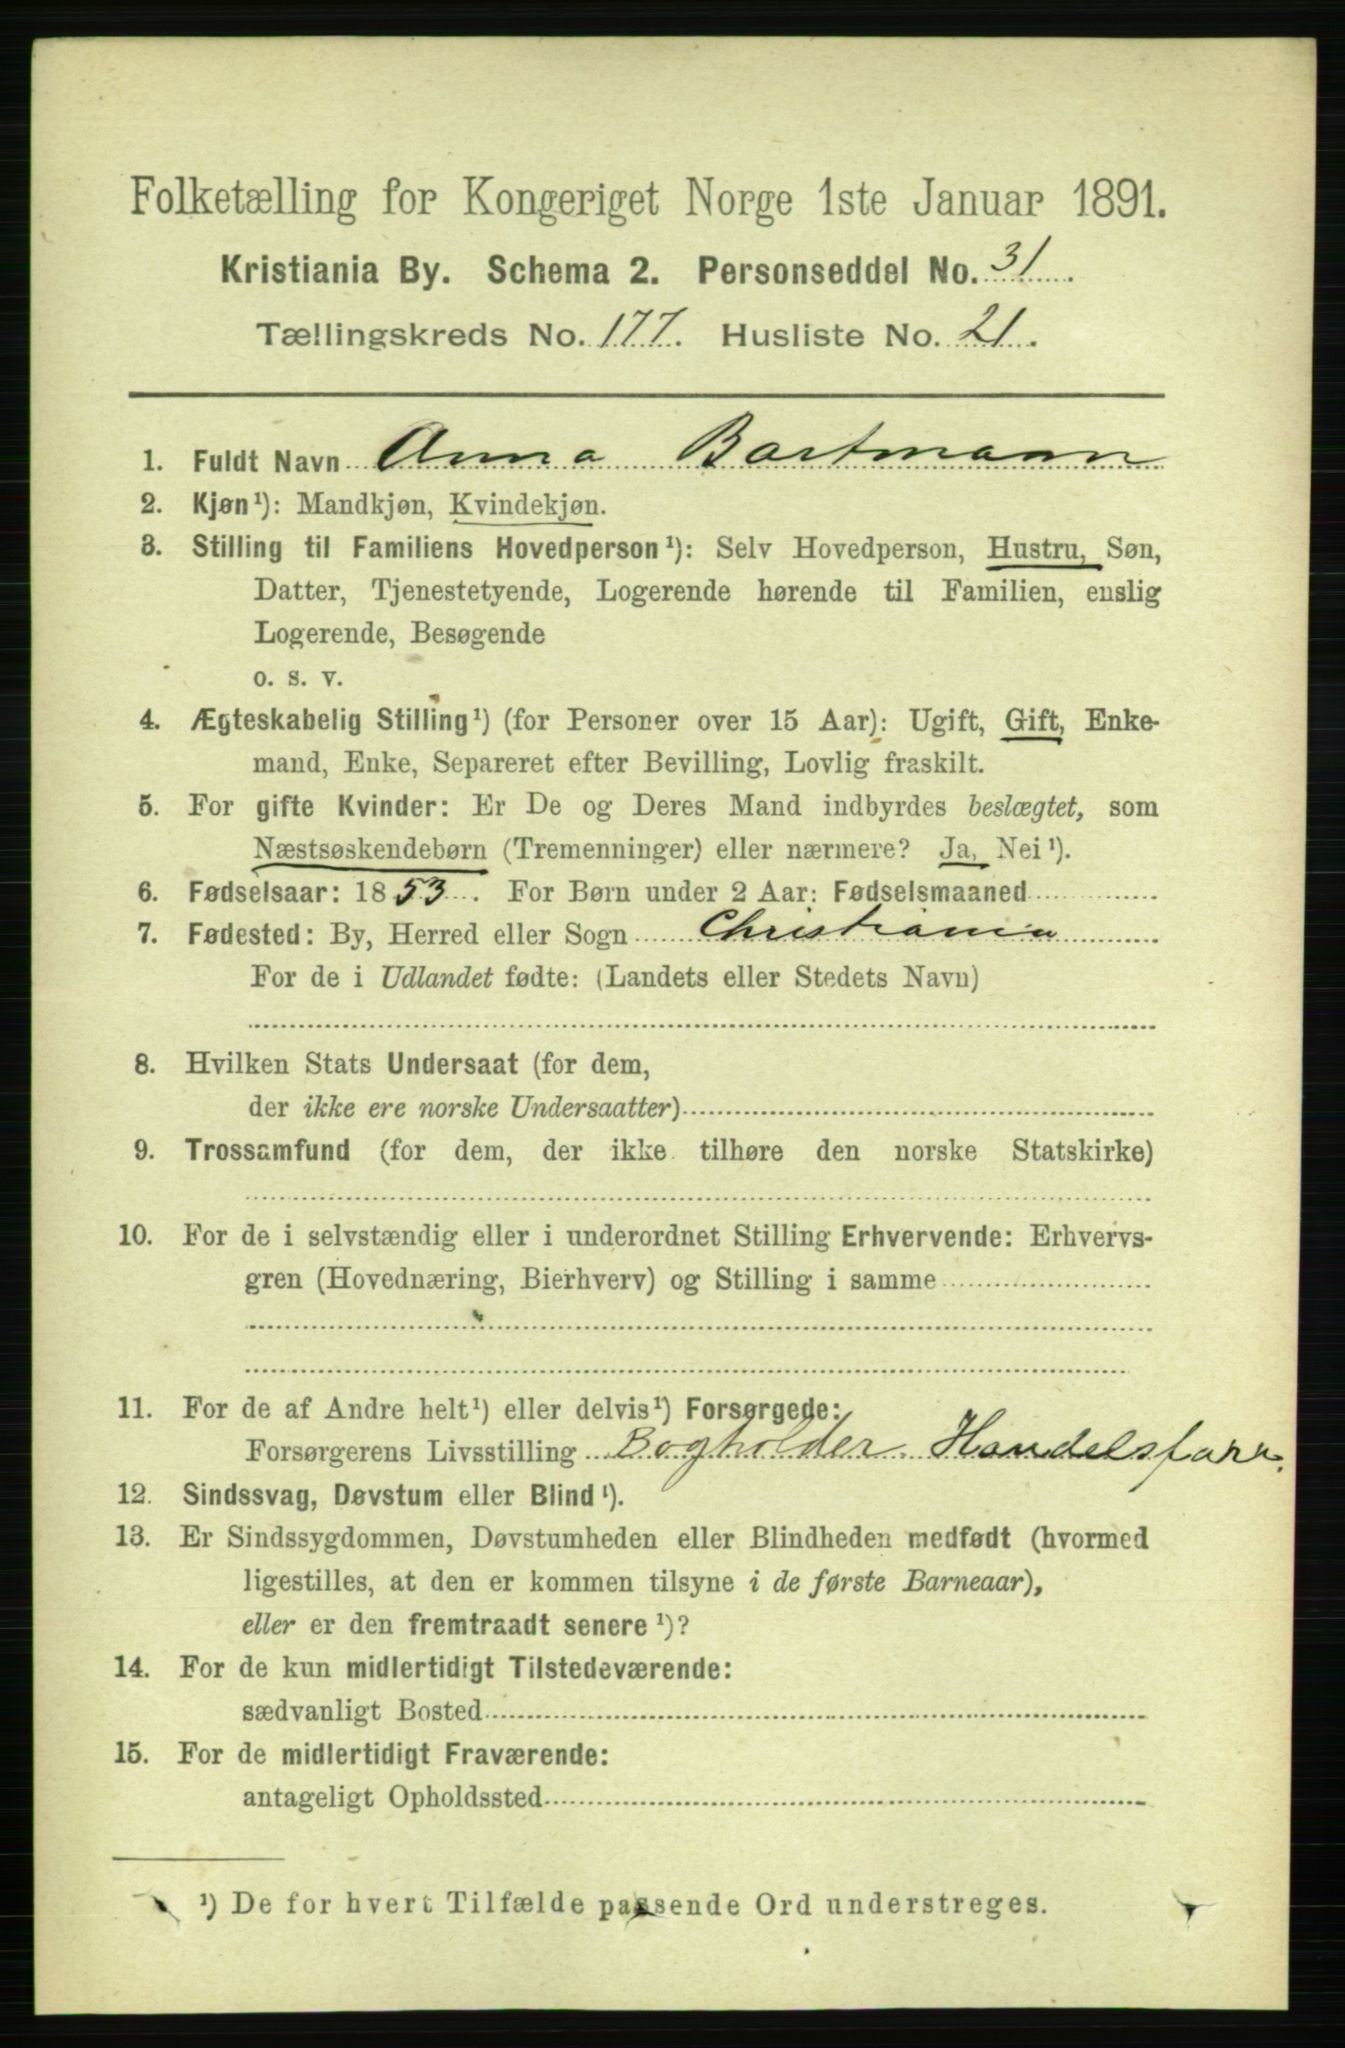 Folketælling for Kongeriget Norge 1ste Januar 1891.
Kristiania By. Schema 2. Personseddel No. 31
Tællingskreds No. 177. Husliste No. 21.
1. Fuldt Navn Anna Bartmann
2. Kjøn¹): Mandkjøn, Kvindekjøn.
3. Stilling til Familiens Hovedperson¹): Selv Hovedperson, Hustru, Søn,
Datter, Tjenestetyende, Logerende hørende til Familien, enslig
Logerende, Besøgende
o. s. v.
4. Ægteskabelig Stilling¹) (for Personer over 15 Aar): Ugift, Gift, Enke-
mand, Enke, Separeret efter Bevilling, Lovlig fraskilt.
5. For gifte Kvinder: Er De og Deres Mand indbyrdes beslægtet, som
Næstsøskendebørn (Tremenninger) eller nærmere? Ja, Nei¹).
6. Fødselsaar: 1853. For Børn under 2 Aar: Fødselsmaaned
7. Fødested: By, Herred eller Sogn Christiania
For de i Udlandet fødte: (Landets eller Stedets Navn)
8. Hvilken Stats Undersaat (for dem,
der ikke ere norske Undersaatter)
9. Trossamfund (for dem, der ikke tilhøre den norske Statskirke)
10. For de i selvstændig eller i underordnet Stilling Erhvervende: Erhvervs-
gren (Hovednæring, Bierhverv) og Stilling i samme
11. For de af Andre helt¹) eller delvis¹) Forsørgede:
Forsørgerens Livsstilling Bogholder Handelsfare.
12. Sindssvag, Døvstum eller Blind¹).
13. Er Sindssygdommen, Døvstumheden eller Blindheden medfødt (hvormed
ligestilles, at den er kommen tilsyne i de første Barneaar),
eller er den fremtraadt senere¹)?
14. For de kun midlertidigt Tilstedeværende:
sædvanligt Bosted
15. For de midlertidigt Fraværende:
antageligt Opholdssted
¹) De for hvert Tilfælde passende Ord understreges.